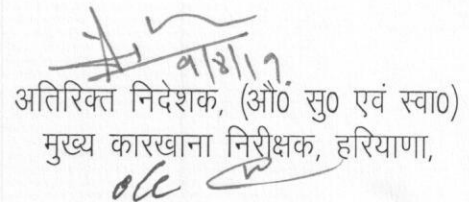 9/8/19
अतिरिक्त निदेशक, (औ0 सु0 एवं स्वा0)
मुख्य कारखाना निरीक्षक, हरियाणा,
o/c